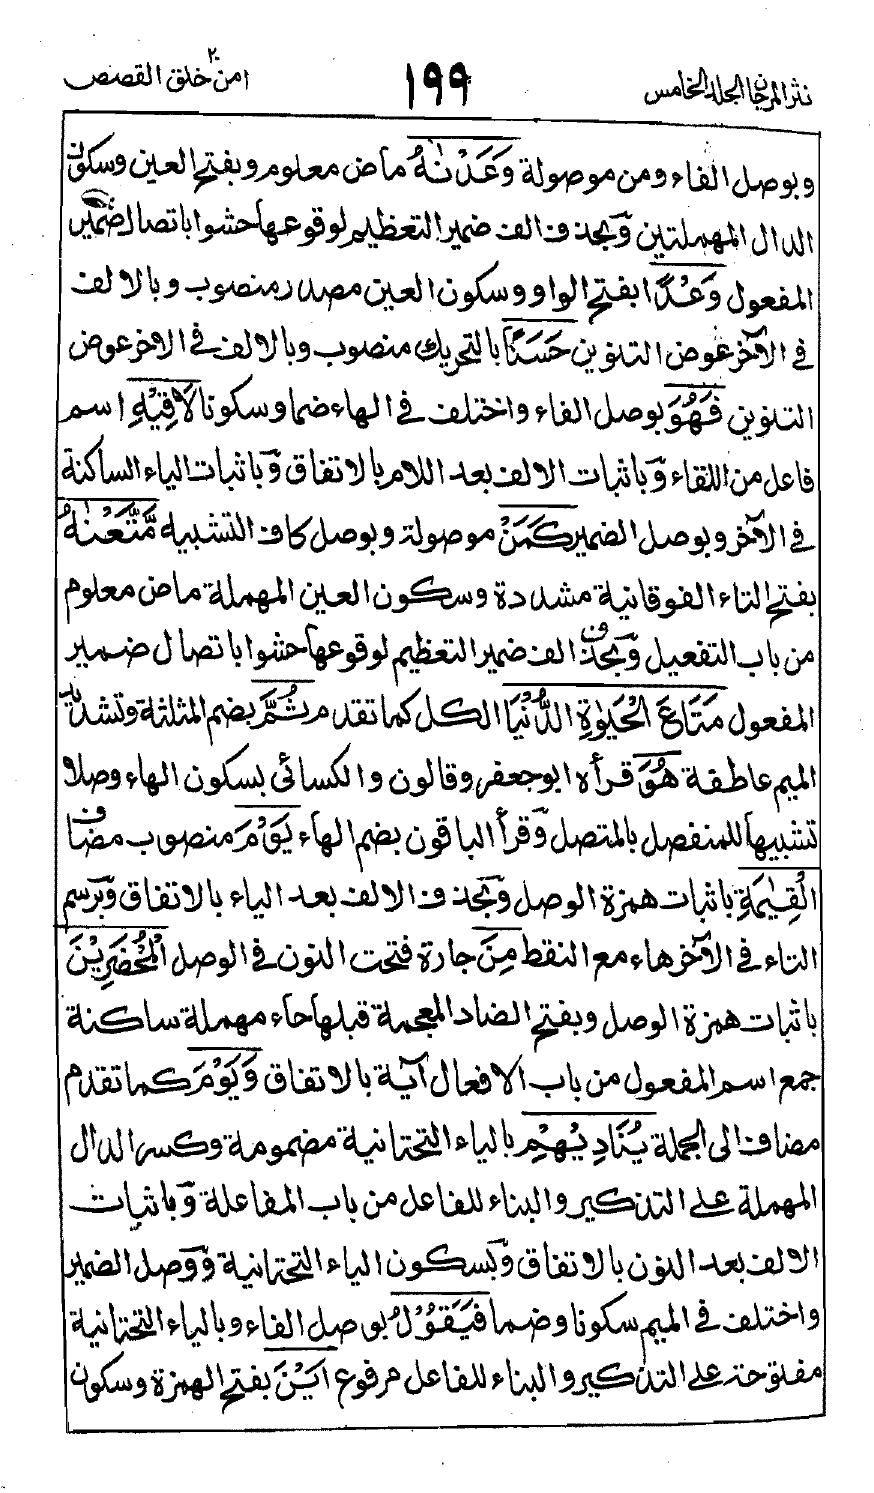 نثر المرجان الجلد الخامس
١٩٩
امن خلق ٢٠ القصص
وبوصل الفاء ومن موصولة وَعَدْنٰهُ ماض معلوم وبفتح العين وسكون
الدال المهملتين وَبحذف الف ضمير التعظيم لوقوعها حشوا باتصال ضمير
المفعول وَعْدًا بفتح الواو وسكون العين مصدر منصوب وبالالف
في الآخر عوض التنوين حَسَنًا بالتحريك منصوب وبالالف في الاخر عوض
التنوين فَهُوَ بوصل الفاء واختلف في الهاء ضما وسكونا لَاقِيْهِ اسم
فاعل من اللقاء وَباثبات الالف بعد اللام بالاتفاق وَباثبات الياء الساكنة
في الآخر وبوصل الضمير كَمَنْ موصولة وبوصل كاف التشبيه مَّتَّعْنٰهُ
بفتح التاء الفوقانية مشددة وسكون العين المهملة ماض معلوم
من باب التفعيل وَبحذف الف ضمير التعظيم لوقوعها حشوا باتصال ضمير
المفعول مَتَاعَ الْحَيٰوةِ الدُّنْيَا الكل كما تقدم ثُمَّ بضم المثلثة وتشديد
الميم عاطفة هُوَ قرأه ابو جعفر وقالون والكسائى بسكون الهاء وصلا
تشبيها للمنفصل بالمتصل وَقرأ الباقون بضم الهاء يَوْمَ منصوب مضاف
الْقِيٰمَةِ باثبات همزة الوصل وَبحذف الالف بعد الياء بالاتفاق وَبرسم
التاء في الآخر هاء مع النقط مِنَ جارة فتحت النون في الوصل الْمُحْضَرِيْنَ
باثبات همزة الوصل وبفتح الضاد المعجمة قبلها حاء مهملة ساكنة
جمع اسم المفعول من باب الافعال آية بالاتفاق وَيَوْمَ كما تقدم
مضاف الى الجملة يُنَادِيْهِمْ بالياء التحتانية مضمومة وكسر الدال
المهملة على التذكير والبناء للفاعل من باب المفاعلة وَباثبات
الالف بعد النون بالاتفاق وَبسكون الياء التحتانية وَوصل الضمير
واختلف في الميم سكونا وضما فَيَقُوْلُ بوصل الفاء وبالياء التحتانية
مفتوحة على التذكير والبناء للفاعل مرفوع اَيْنَ بفتح الهمزة وسكون